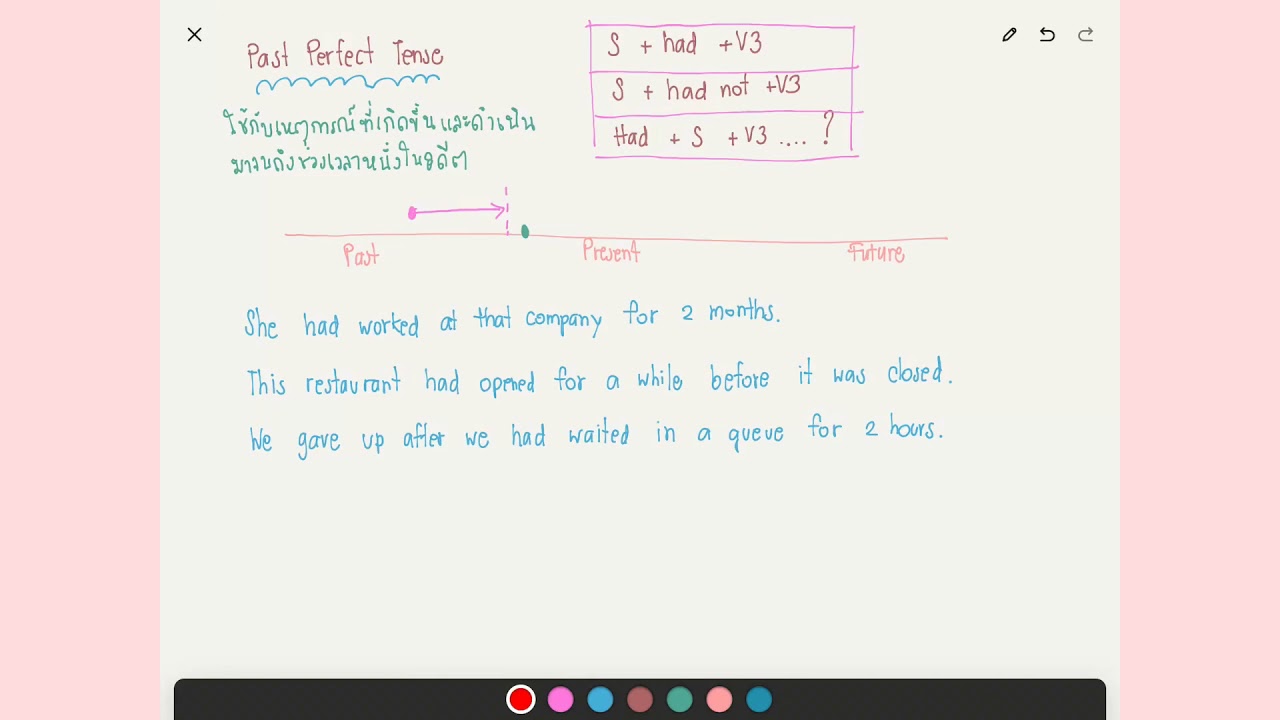 Past Perfect Tense
S + had + V3
S + had not + V3
Had + S + V3 .... ?
ใช้กับเหตุการณ์ที่เกิดขึ้นและดำเนิน
มาจนถึงช่วงเวลาหนึ่งในอดีต
Past Present Future
She had worked at that company for 2 months.
This restaurant had opened for a while before it was closed.
We gave up after we had waited in a queue for 2 hours.